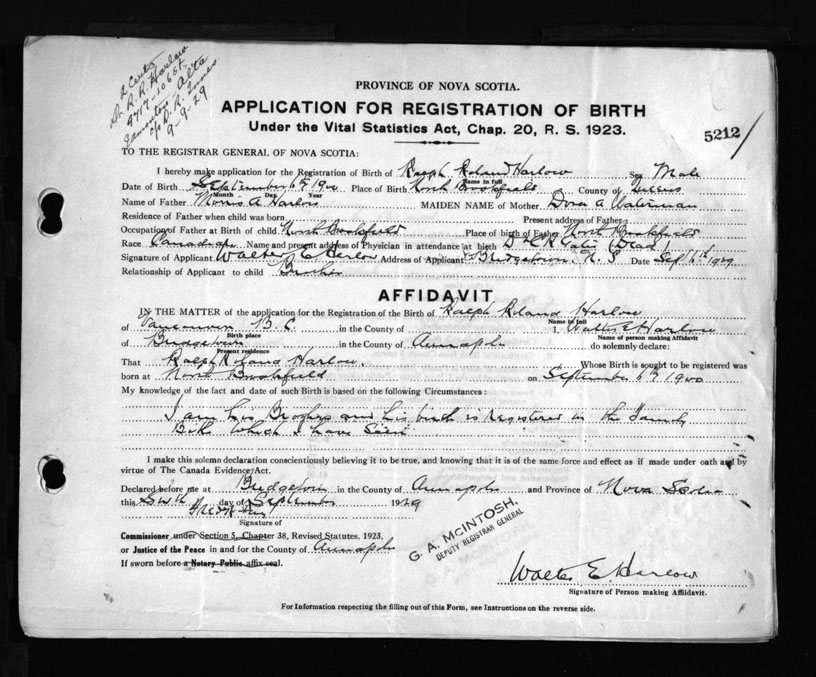 2 Cents
Dr. R. R. Harlow
9717-106 St.
Edmonton Alta
c/o D. R. Innes
9-9-29
PROVINCE OF NOVA SCOTIA.
APPLICATION FOR REGISTRATION OF BIRTH
Under the Vital Statistics Act, Chap. 20, R. S. 1923.
5212
TO THE REGISTRAR GENERAL OF NOVA SCOTIA:
I hereby make application for the Registration of Birth of Ralph Roland Harlow Sex Male
Name in full
Date of Birth September 6th 1900 Place of Birth North Brookfield County of Queens
Month Day Year
Name of Father Morris A Harlow MAIDEN NAME of Mother Dora A Waterman
Residence of Father when child was born Present address of Father
Occupation of Father at Birth of child North Brookfield Place of birth of Father North Brookfield
Race Canadian Name and present address of Physician in attendance at birth Dr (Dead)
Signature of Applicant Walter E Harlow Address of Applicant Bridgetown N. S Date Sept 6th 1929
Relationship of Applicant to child Brother
AFFIDAVIT
IN THE MATTER of the application for the Registration of the Birth of Ralph Roland Harlow
Name in full
of Vancouver B. C. in the County of I, Walter E Harlow
Birth place Name of person making Affidavit
of Bridgetown in the County of Annapolis do solemnly declare:
Present residence
That Ralph Roland Harlow. Whose Birth is sought to be registered was
born at North Brookfield on September 6th 1900
My knowledge of the fact and date of such Birth is based on the following Circumstances:
I am his Brother and his birth is registered in the Family
Bible which I have seen
I make this solemn declaration conscientiously believing it to be true, and knowing that it is of the same force and effect as if made under oath and by
virtue of The Canada Evidence Act.
Declared before me at Bridgetown in the County of Annapolis and Province of Nova Scotia
this Sixth day of September 1929
Signature of
Commissioner under Section 5, Chapter 38, Revised Statutes, 1923,
or Justice of the Peace in and for the County of Annapolis
If sworn before a Notary Public affix seal.
G. A. McINTOSH,
DEPUTY REGISTRAR GENERAL
Walter E. Harlow
Signature of Person making Affidavit.
For Information respecting the filling out of this Form, see Instructions on the reverse side.